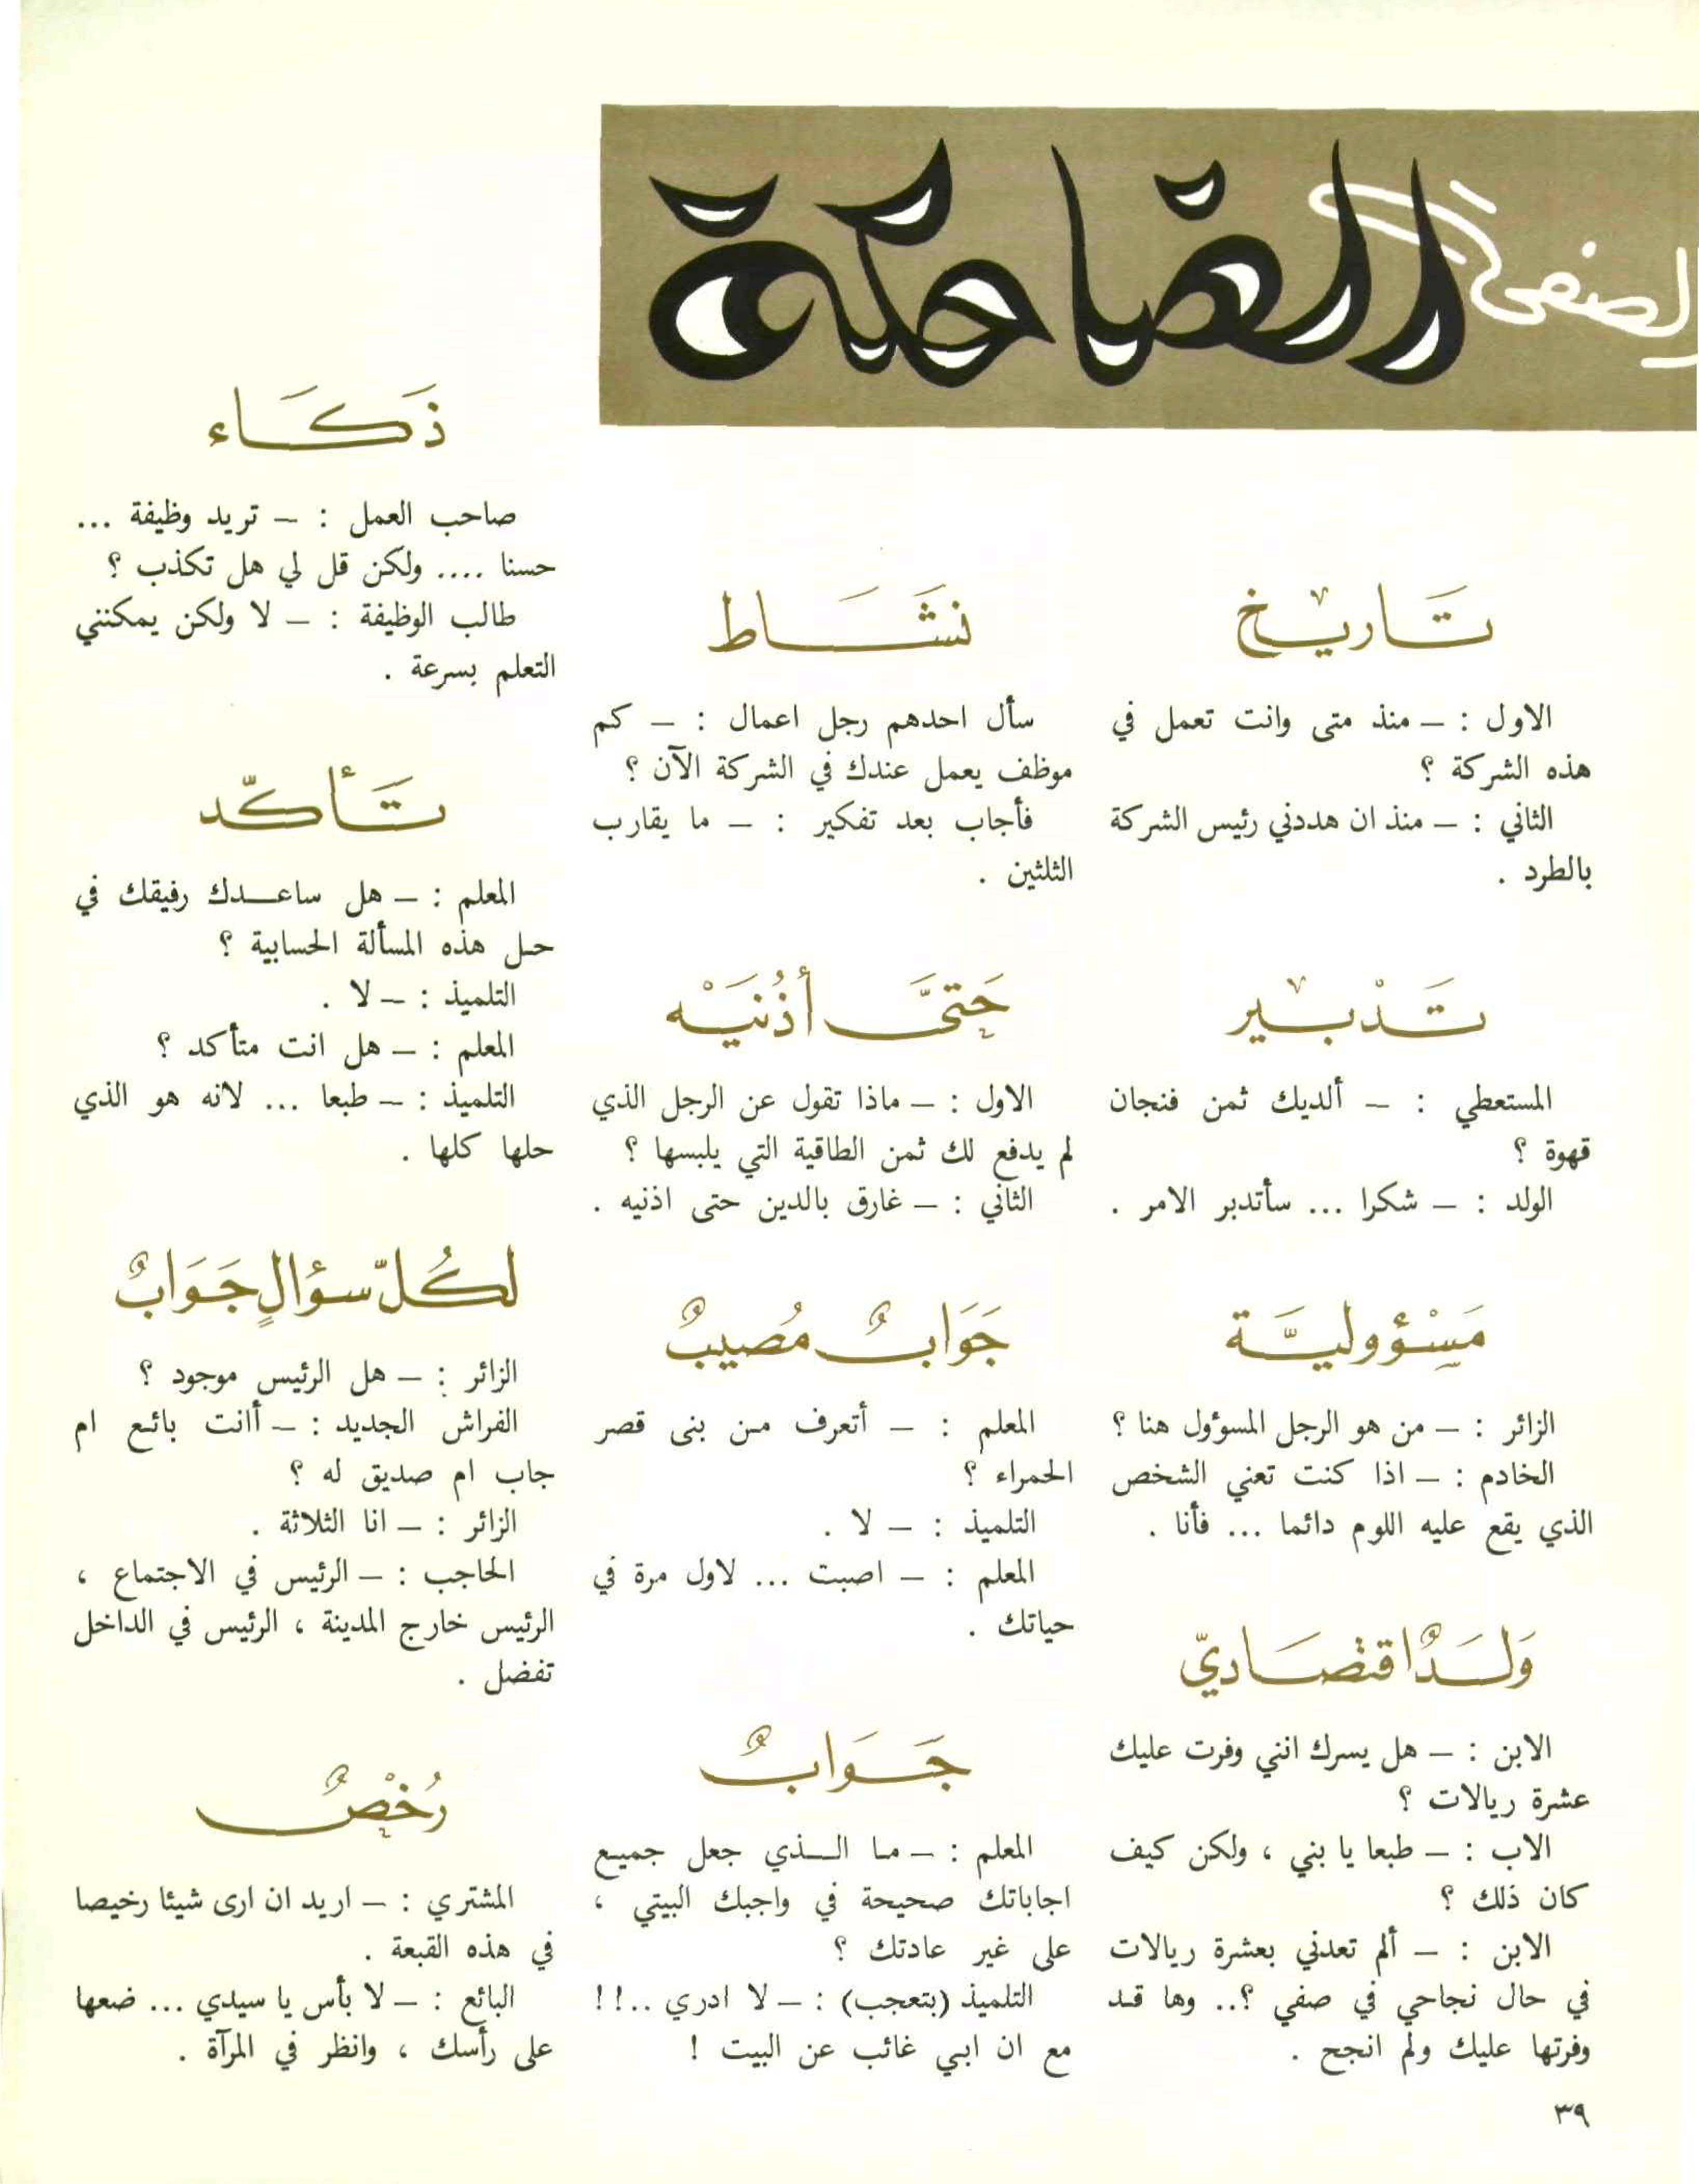 الصفحة
الضاحكة
تَاريخ
الاول : – منذ متى وانت تعمل في
هذه الشركة ؟
الثاني : – منذ ان هددني رئيس الشركة
بالطرد .
تَدْبير
المستعطي : – ألديك ثمن فنجان
قهوة ؟
الولد : – شكرا ... سأتدبر الامر .
مَسْؤوليَّة
الزائر : – من هو الرجل المسوؤل هنا ؟
الخادم : – اذا كنت تعني الشخص
الذي يقع عليه اللوم دائما ... فأنا .
وَلَدٌ اقتصَاديّ
الابن : – هل يسرك انني وفرت عليك
عشرة ريالات ؟
الاب : – طبعا يا بني ، ولكن كيف
كان ذلك ؟
الابن : – ألم تعدني بعشرة ريالات
في حال نجاحي في صفي ؟.. وها قد
وفرتها عليك ولم انجح .
نَشَاط
سأل احدهم رجل اعمال : – كم
موظف يعمل عندك في الشركة الآن ؟
فأجاب بعد تفكير : – ما يقارب
الثلثين .
حَتىَّ أذُنَيْه
الاول : – ماذا تقول عن الرجل الذي
لم يدفع لك ثمن الطاقية التي يلبسها ؟
الثاني : – غارق بالدين حتى اذنيه .
جَوَابٌ مُصيبٌ
المعلم : – أتعرف من بنى قصر
الحمراء ؟
التلميذ : – لا .
المعلم : – اصبت ... لاول مرة في
حياتك .
جَوَابٌ
المعلم : – ما الـذي جعل جميع
اجاباتك صحيحة في واجبك البيتي ،
على غير عادتك ؟
التلميذ (بتعجب) : – لا ادري ..!!
مع ان ابي غائب عن البيت !
ذَكَاء
صاحب العمل : – تريد وظيفة ...
حسنا .... ولكن قل لي هل تكذب ؟
طالب الوظيفة : – لا ولكن يمكنني
التعلم بسرعة .
تَأكّد
المعلم : – هل ساعـدك رفيقك في
حل هذه المسألة الحسابية ؟
التلميذ : – لا .
المعلم : – هل انت متأكد ؟
التلميذ : – طبعا ... لانه هو الذي
حلها كلها .
لكُلّ سؤالٍ جَوَابٌ
الزائر : – هل الرئيس موجود ؟
الفراش الجديد : – أانت بائع ام
جاب ام صديق له ؟
الزائر : – انا الثلاثة .
الحاجب : – الرئيس في الاجتماع ،
الرئيس خارج المدينة ، الرئيس في الداخل
تفضل .
رُخْصٌ
المشتري : – اريد ان ارى شيئا رخيصا
في هذه القبعة .
البائع : – لا بأس يا سيدي ... ضعها
على رأسك ، وانظر في المرآة .
٣٩